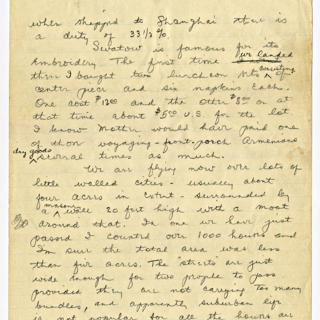 when shipped to Shanghai there is
a duty of 33 1/3 %.
Swatow is famous for its
embroidery. The first time we landed
there I bought two luncheon sets consisting of
center piece and six napkins each.
One cost $13.00 and the other $8.00 or at
that time about $5.00 U.S. for the lot
I know Mother would have paid one
of those voyaging - front-porch Armenians
dry goods several times as much.
We are flying now over lots of
little walled cities - usually about
four acres in extent - surrounded by
a massive wall 20 feet high with a moat
around that. In one we have just
passed I counted over 1000 houses and
I'm sure the total area was less
than five acres. The "streets" are just
wide enough for two people to pass
provided they are not carrying too many
bundles, and apparently suburban life
is not popular for all the houses are